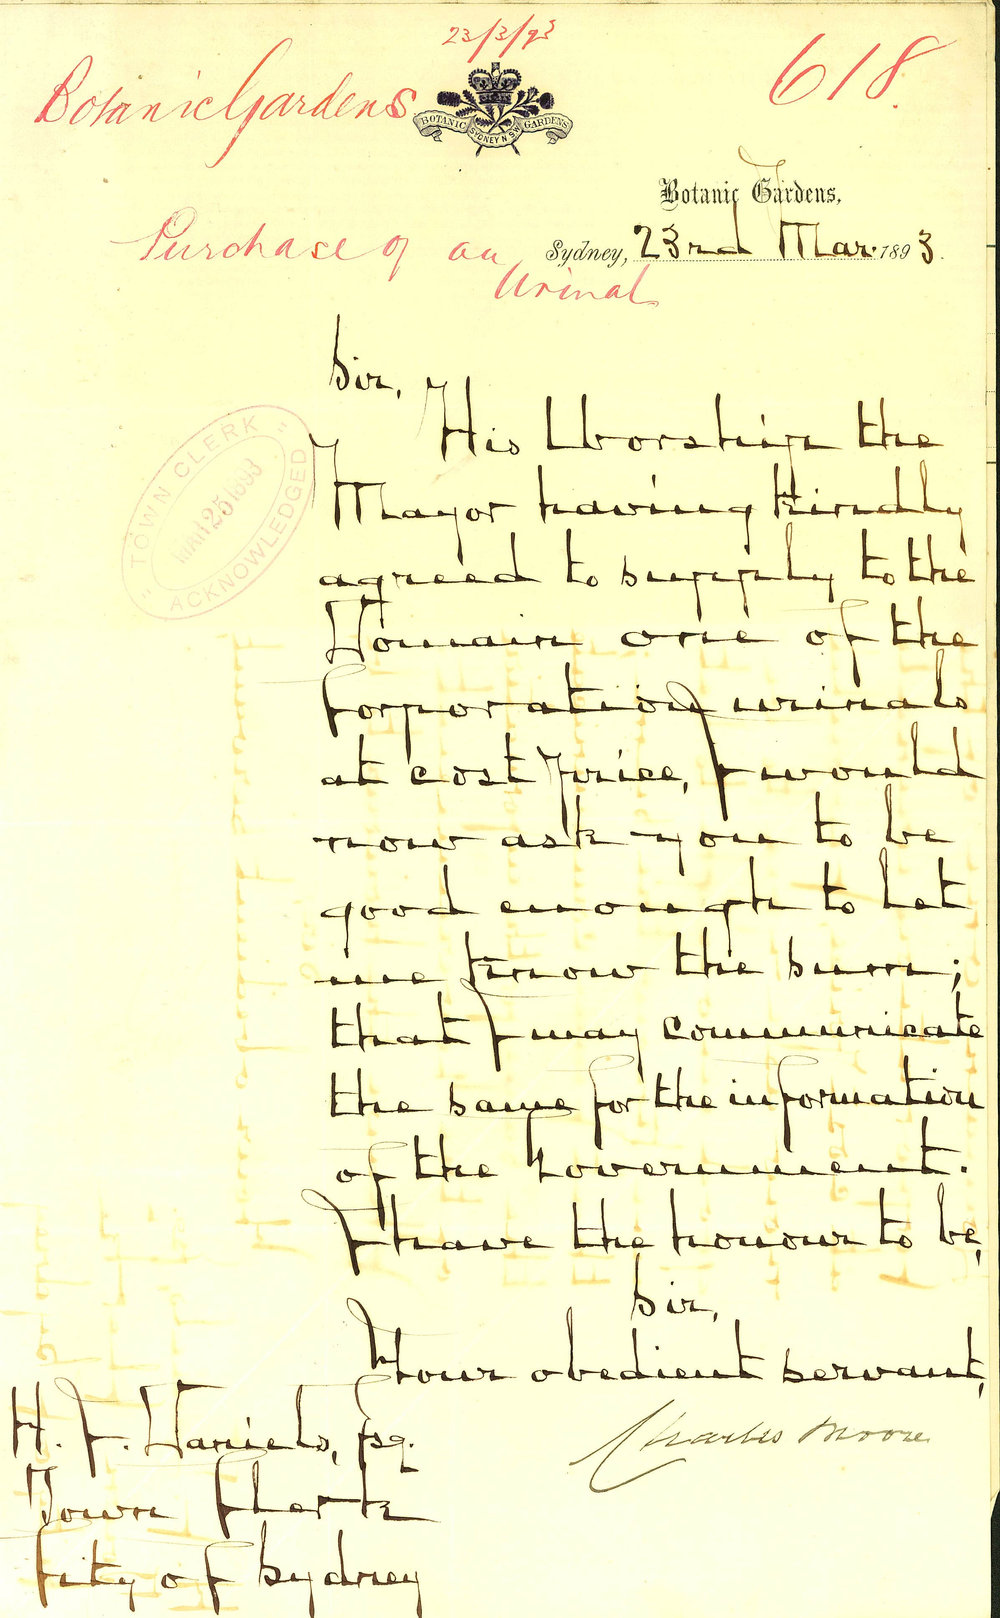 23/3/93
Botanic Gardens
618.
BOTANIC GARDENS
SYDNEY N.S.W.
Botanic Gardens,
Sydney, 23rd Mar. 1893.
Purchase of an
Urinal
Sir,
His Worship the
Mayor having kindly
agreed to supply to the
Domain one of the
Corporation urinals
at cost price, I would
now ask you to be
good enough to let
me know the sum;
that I may communicate
the same for the information
of the Government.
I have the honour to be,
Sir,
Your obedient servant,
Charles Moore
H. J. Daniels, Esq.
Town Clerk
City of Sydney
"TOWN CLERK"
MAR 25 1893
ACKNOWLEDGED